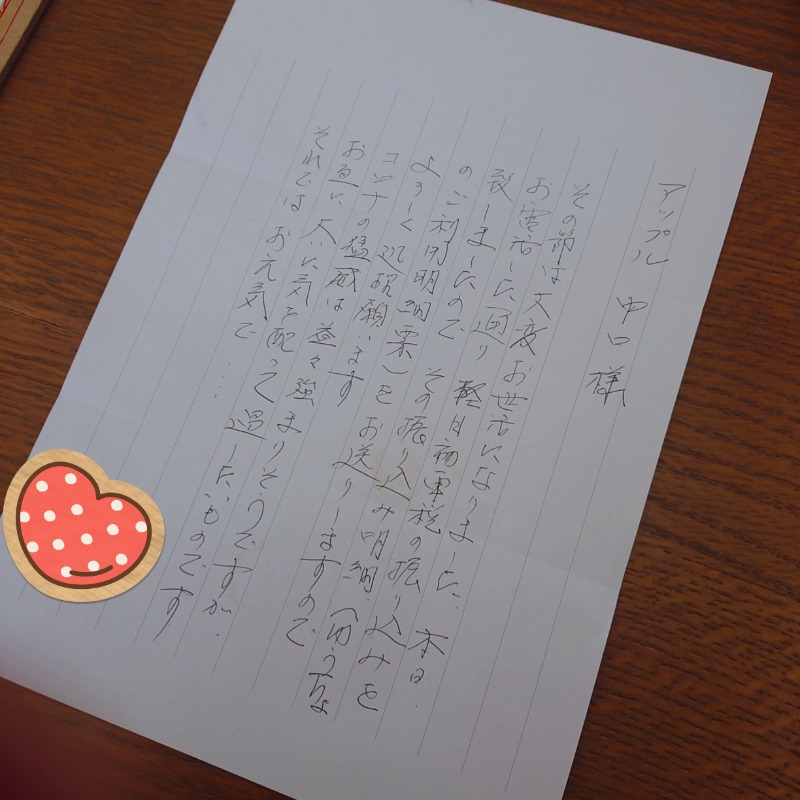 アップル 中口 様
その節は大変お世話になりました. 本日.
お電話した通り 軽自動車税の振り込みを
致しましたので その振り込み明細.(ゆうちょ
のご利用明細票)を お送りしますので
よろしく 願います
コロナの猛威は益々強まりそうですが.
お互いに 大いに気を配って 過したいものです
それでは お元気で....